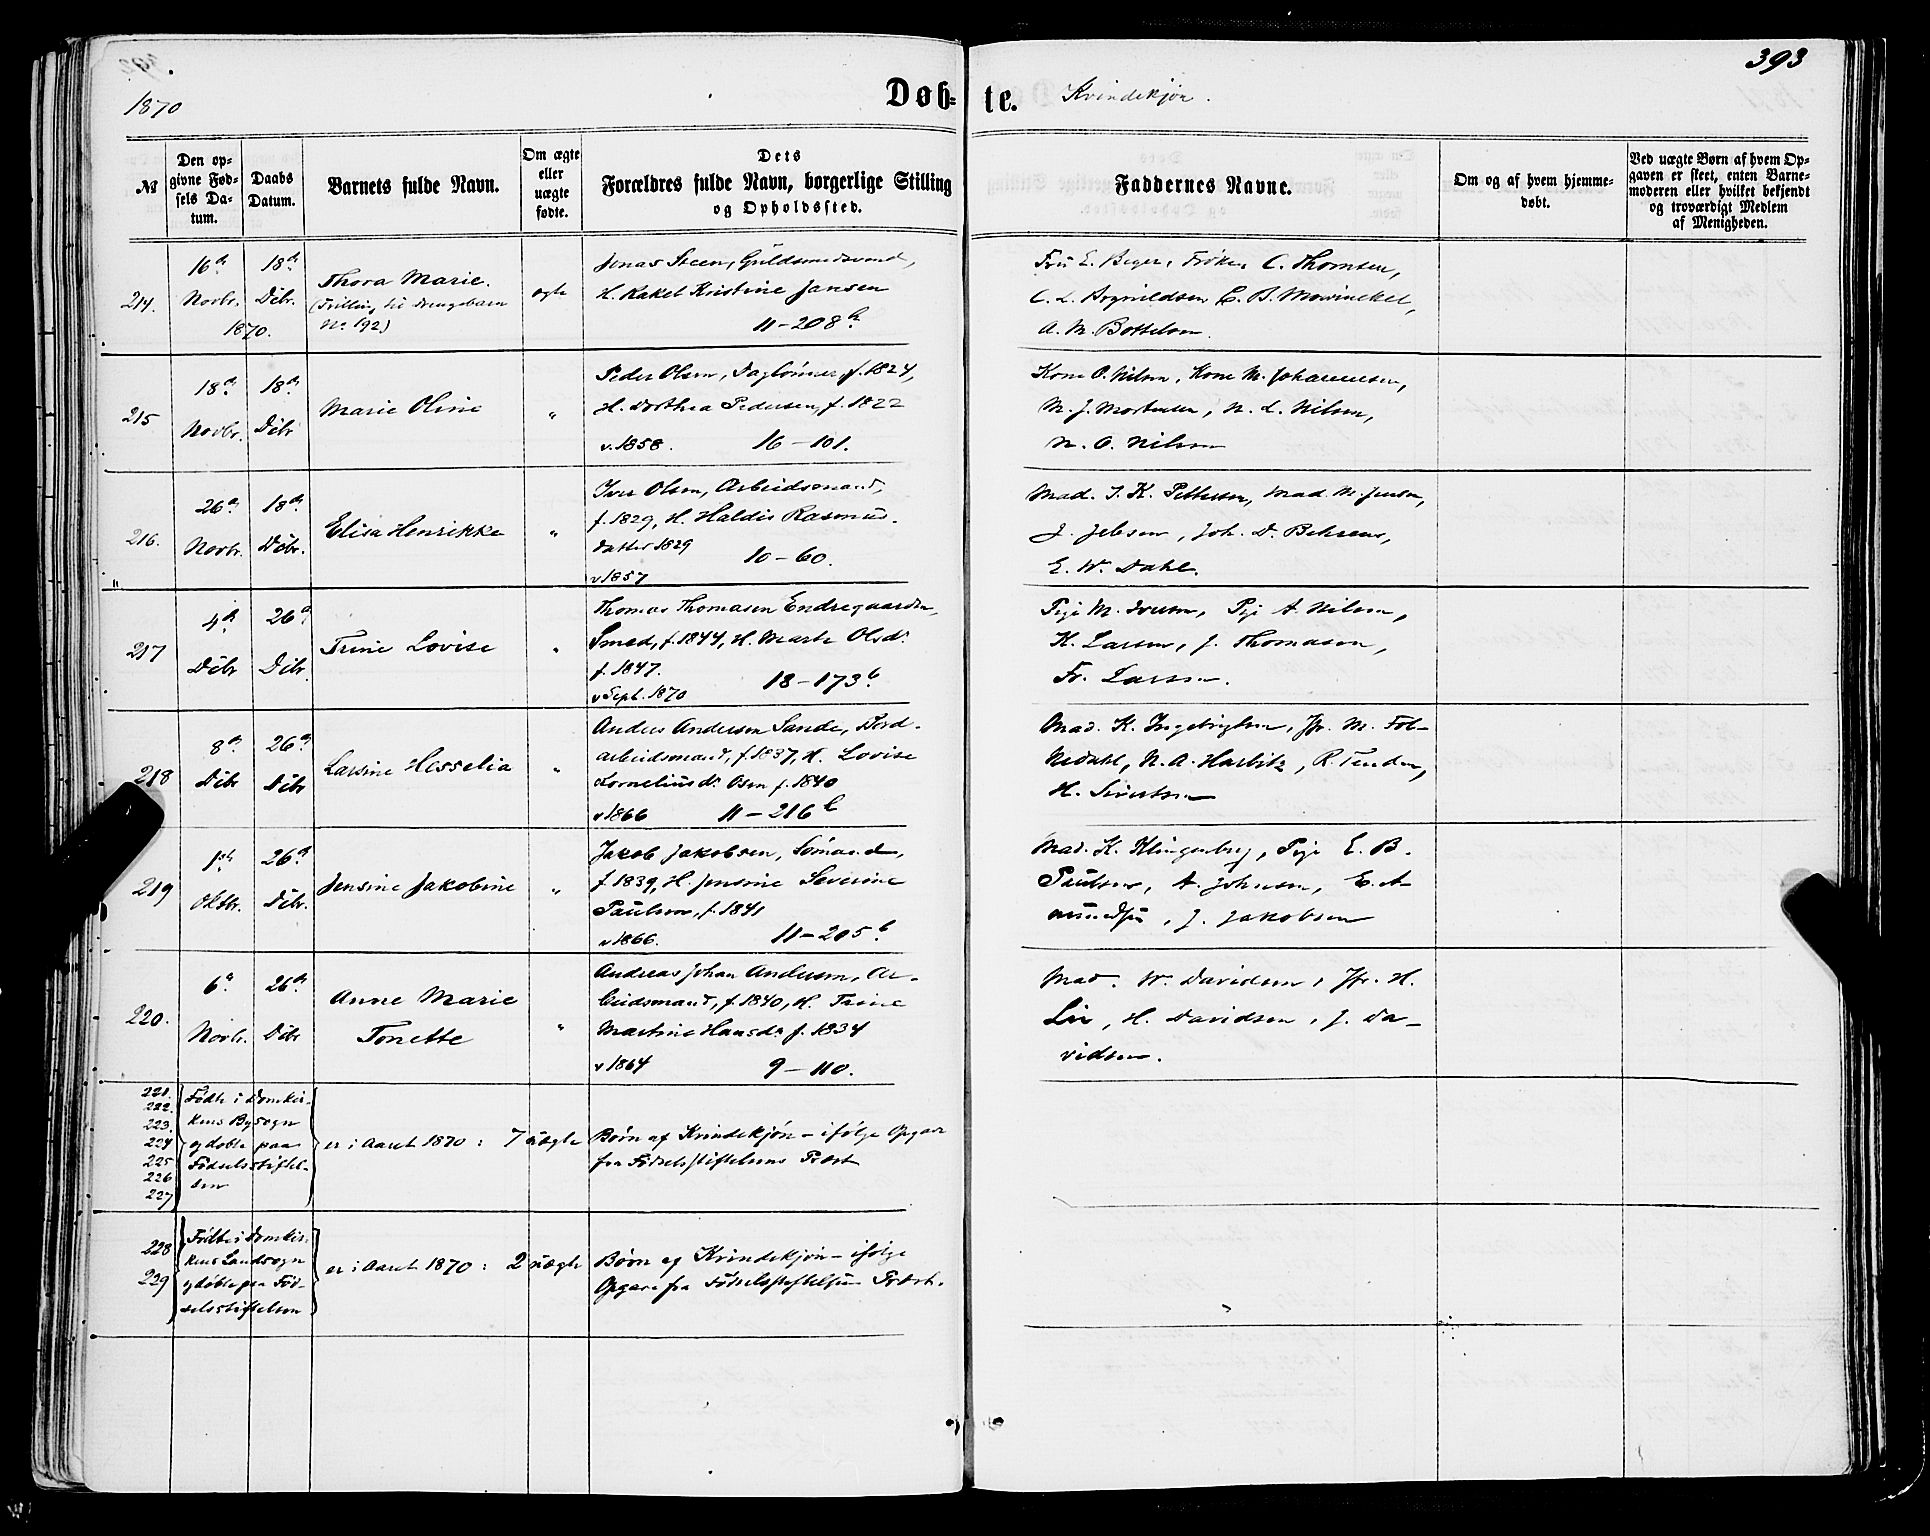 393
1870
Døb= te. Kvindekjøn.
№
Den op-
givne Fød-
sels Da-
tum.
Daabs
Datum.
Barnets fulde Navn.
Om ægte
eller
uægte
fødte.
Dets
Forældres fulde Navn, borgerlige Stilling
og Opholdssted.
Faddernes Navne.
Om og af hvem hjemme-
døbt.
Ved uægte Børn af hvem Op-
gaven er skeet, enten Barne-
moderen eller hvilket bekjendt
og troværdigt Medlem
af Menigheden.
214.
16de
Novbr.
1870.
18de
Dcbr.
Thora Marie.
(Trilling til Drengebarn
No. 192)
ægte
Jonas Steen, Guldsmedsvend,
H. Rakel Kristine Jansen
11-208 b.
Fru E. Beyer, Frøken C. Thomsen,
C. B. Mowinckel,
A. M. Bottelsen.
215
18de
Novbr.
18de
Dcbr
Marie Oline
"
Peder Olsen, Daglønner, f. 1824,
H. Dorthea Pedersen, f. 1822
v. 1858. 16-101.
Kone O. Nilsen, Kone M. Johannesen,
M. J. Mortensen, N. L. Nilsen,
N. O. Nilsen
216.
26de
Novbr.
18de
Dcbr.
Elisa Henrikke
"
Iver Olsen, Arbeidsmand,
f. 1829, H. Haldis Rasmus-
datter 1829 10-60.
v 1857
Mad. I. K. Pettersen, Mad. M. Jensen,
J. Jebsen, Joh. D. Behrens,
E. W. Dahl.
217
4de
Dcbr
26de
Dcbr.
Trine Lovise
"
Thomas Thomasen Endregaarden,
Smed, f. 1844, H. Marte Olsdr.
f. 1847.
v Sept. 1870 18-173 b.
Pige M. Iversen, Pige A. Nilsen,
K. Larsen, J. Thomasen,
Fr. Larsen.
218
8de
Dcbr
26de
Dcbr
Larsine Hesselia
"
Anders Andersen Sande, Jord-
arbeidsmand, f. 1837, H. Lovise
Korneliusdr. Osen f. 1840
v 1866 11-216 b
Mad. K. Ingebrigtsen, Jfr. M. Fol-
N. A. Harbitz, R. Tender,
H. Sivertsen
219
1ste
Oktbr.
26de
Dcbr.
Jensine Jakobine
"
Jakob Jakobsen, Sømand,
f. 1839, H. Jensine Severine
Paulsen, f. 1841
v 1866. 11-205 b.
Mad. K. Klingenberg, Pige E. B.
Paulsen, A. Johnsen, E. A-
J. Jakobsen
220.
6te
Novbr.
26de
Dcbr
Anne Marie
Tonette
"
Andreas Johan Andersen, Ar-
beidsmand, f. 1840, H. Trine
Martine Hansdr. f. 1834
v 1864 9-110.
Mad. W. Davidsen, Jfr. H.
Lie, H. Davidsen, J. Da-
vidsen.
221.
222.
223.
224
225
226
227
Fødte i Domkir-
kens Bysogn
og døbte paa
Fødselsstiftel-
sen
er i Aaret 1870: 7 uægte Børn af Kvindekjøn - ifølge Opgave
fra Fødselsstiftelsens Præst
228
229
Fødte i Domkir-
kens Landsogn
og døbte paa Fød-
selsstiftelsen
er i Aaret 1870: 2 uægte Børn af Kvindekjøn - ifølge
Opgave fra Fødselsstiftelsens Præst.